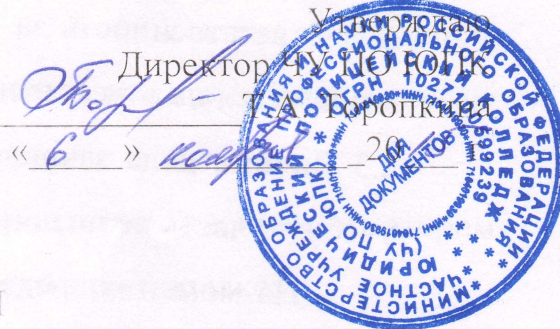 Утверждаю
Директор ЧУ ПО ЮПК
Т.А. Торопкина
« 6 » ноября 20
МИНИСТЕРСТВО ОБРАЗОВАНИЯ И НАУКИ РОССИЙСКОЙ ФЕДЕРАЦИИ
ЧАСТНОЕ УЧРЕЖДЕНИЕ ПРОФЕССИОНАЛЬНОГО ОБРАЗОВАНИЯ
ЮРИДИЧЕСКИЙ ПОЛИЦЕЙСКИЙ КОЛЛЕДЖ
(ЧУ ПО ЮПК)
ДЛЯ
ДОКУМЕНТОВ